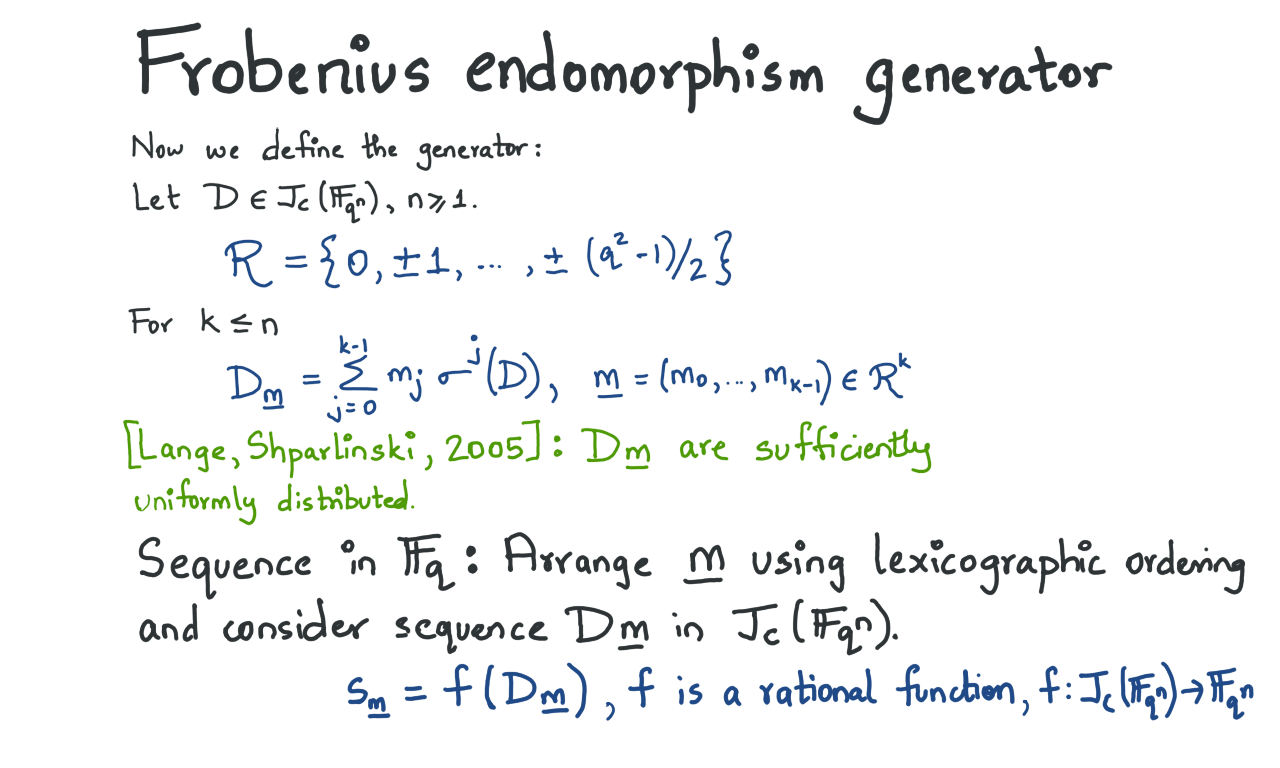 Frobenius endomorphism generator
Now we define the generator:
Let D ∈ J_C(𝔽_{qⁿ}), n ⩾ 1.
R = {0, ±1, ..., ± (q²-1)/2}
For k ≤ n
D_m̲ = ∑_{j=0}^{k-1} m_j σ^j(D), m̲ = (m₀, .., m_{k-1}) ∈ R^k
[Lange, Shparlinski, 2005]: D_m̲ are sufficiently
uniformly distributed.
Sequence in 𝔽_q: Arrange m̲ using lexicographic ordering
and consider sequence D_m̲ in J_C(𝔽_{qⁿ}).
s_m̲ = f(D_m̲), f is a rational function, f: J_C(𝔽_{qⁿ}) → 𝔽_{qⁿ}